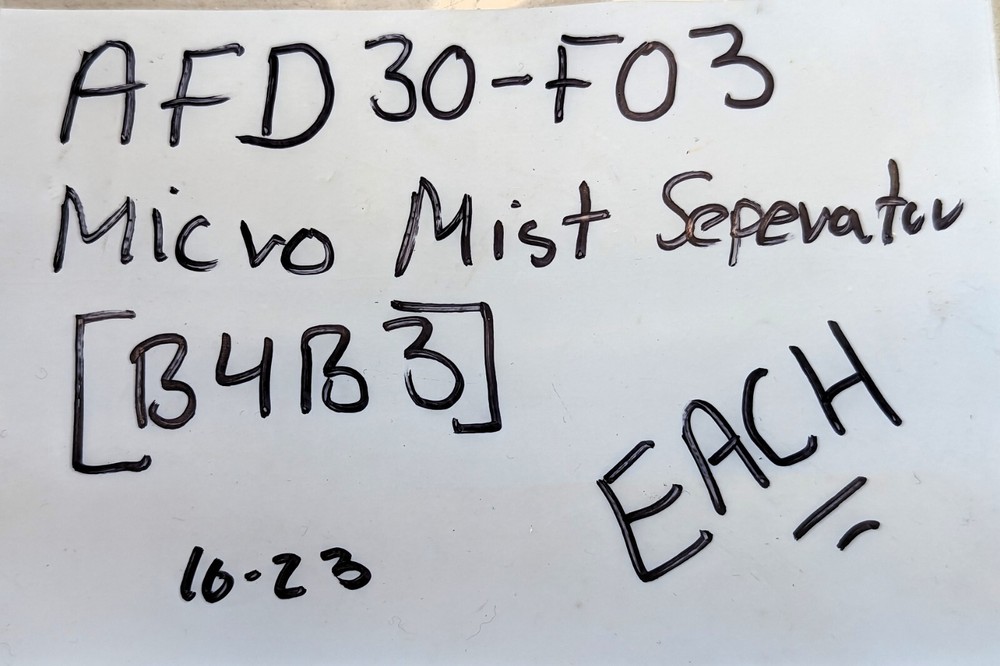 AFD30-F03
Micro Mist Seperator
[B4B3]
EACH
10-23